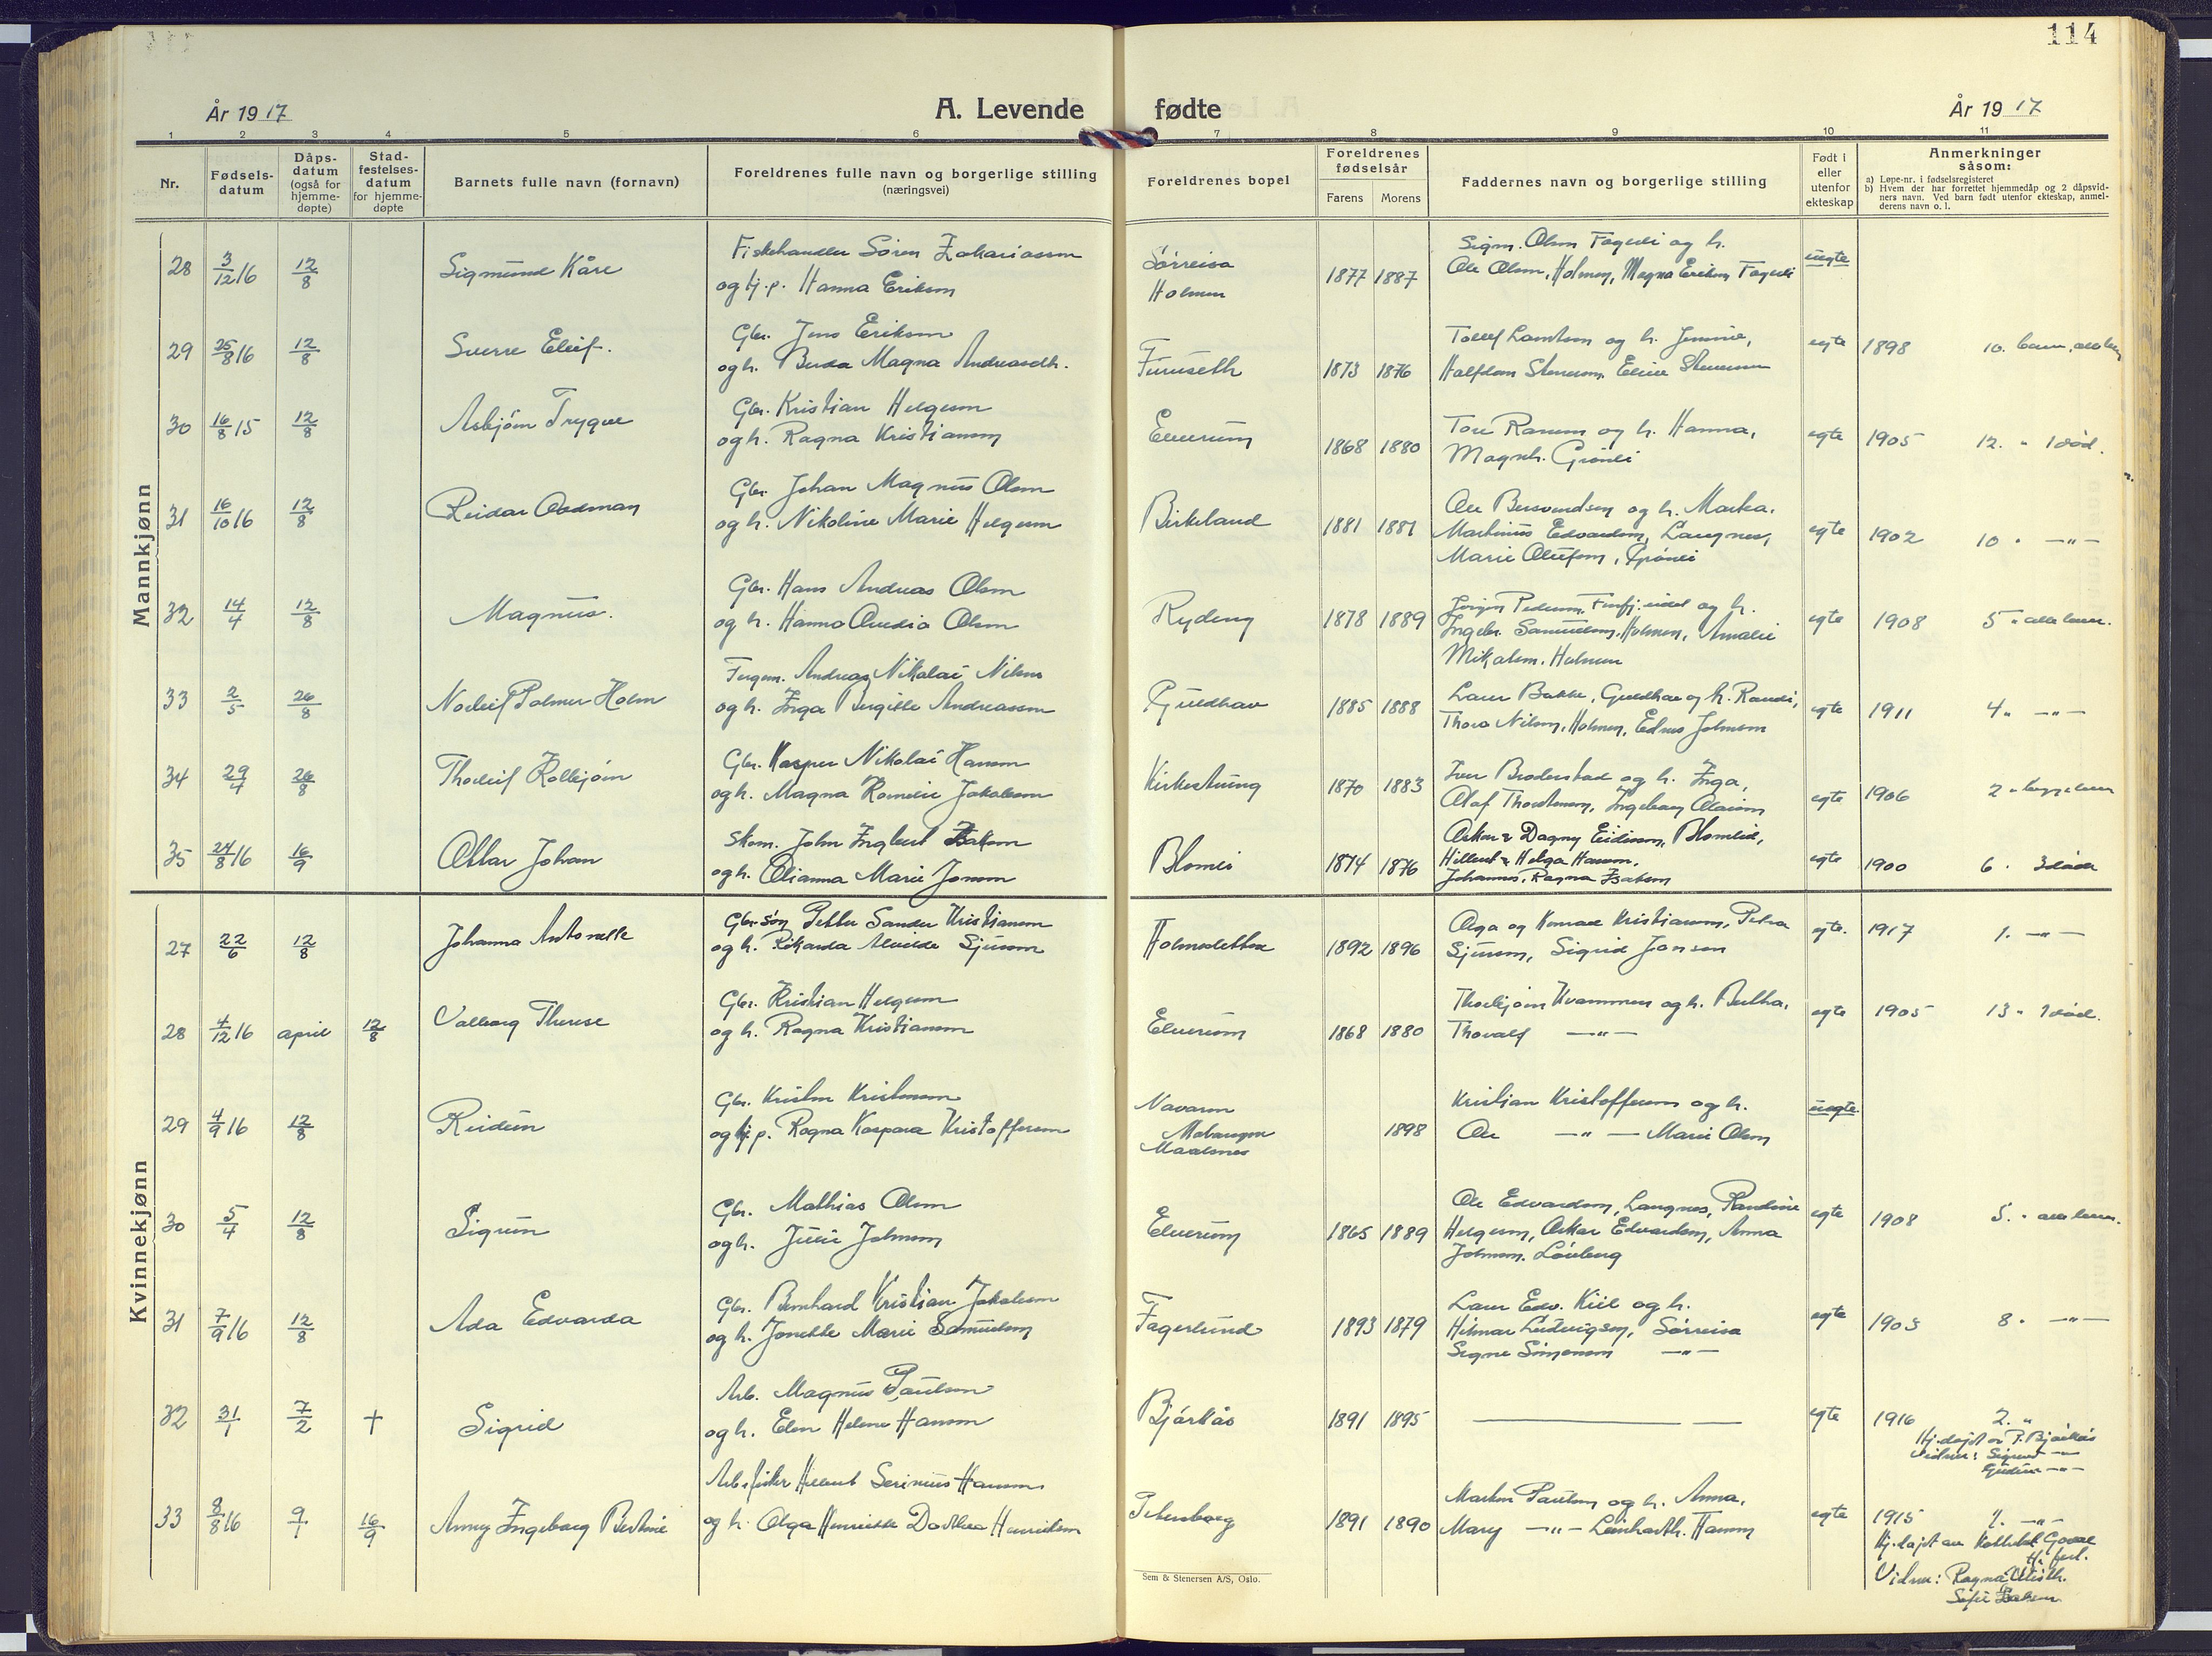 114
År 1917
A. Levende fødte
År 1917
1 2 3 4 5 6 7 8 9 10 11
Nr.
Fødsels-
datum
Dåps-
datum
(også for
hjemme-
døpte)
Stad-
festelses-
datum
for hjemme-
døpte
Barnets fulle navn (fornavn)
Foreldrenes fulle navn og borgerlige stilling
(næringsvei)
Foreldrenes bopel
Foreldrenes
fødselsår
Farens Morens
Faddernes navn og borgerlige stilling
Født i
eller
utenfor
ekteskap
Anmerkninger
såsom:
a) Løpe-nr. i fødselsregisteret
b) Hvem der har forrettet hjemmedåp og 2 dåpsvid-
ners navn. Ved barn født utenfor ekteskap, anmel-
derens navn o. l.
Mannkjønn
28 3/12 16 12/8 Sigmund Kåre
Fiskehandler Sören Zakariassen
og pi. Hanna Eriksen
Sörreisa
Holmen
1877 1887
Sigm. Olsen Fagerli og h.
Ole Olsen, Holmen, Magna Eriksen Fagerli
uegte
29 25/8 16 12/8 Sverre Eleif.
Gbr. Jens Eriksen
og h. Berda Magna Andreasdtr.
Furuseth
1873 1876
Tollef Lambtsen og h. Jennie,
Halfdan Stenersen, Eline Stenersen
egte 1898 10. barn, alle lev.
30 16/8 15 12/8 Asbjörn Trygve
Gbr. Kristian Helgesen
og h. Ragna Kristiansen
Elverum
1868 1880
Tore Ranum og h. Hanna,
Magnh. Grönli
egte 1905 12. " 1 död.
31 16/10 16 12/8 Reidar Oedman
Gbr. Johan Magnus Olsen
og h. Nikoline Marie Helgesen
Birkeland
1881 1881
Ole Bersvendsen og h. Marka.
Martinus Edvardsen, Langnes,
Marie Olufsen, Grönli
egte 1902 10 " —"—
32 14/4 12/8 Magnus.
Gbr. Hans Andreas Olsen
og h. Hanna Ovedia Olsen
Rydeng
1878 1889
Jörgen Pedersen, Finfj.eidet og h.
Ingebr. Samuelsen, Holmen, Amalie
Mikalsen, Holmen
egte 1908 5 " alle lever.
33 2/5 26/8 Norleif Palmer Holm
Fergem. Andreas Nikolai Nilsen
og h. Inga Birgitte Andreassen
Guldhav
1885 1888
Laur Bakke, Guldhav og h. Randi,
Thora Nilsen, Holmen, Edvus Johnsen
egte 1911 4. —"—
34 29/4 26/8 Thorleif Kolbjörn
Gbr. Kasper Nikolai Hansen
og h. Magna Kornelie Jakobsen
Kirkestuing
1870 1883
Iver Broderstad og h. Inga,
Olaf Thorstensen, Ingeborg Olaisen
egte 1906 2 " begge lever
35 24/8 16 16/9 Ottar Johan
Skom. John Ingbert Isaksen
og h. Olianna Marie Jonsen
Blomli
1874 1876
Oskar & Dagny Eidissen, Blomlid,
Hilbert & Helga Hansen,
Johannes, Ragna Isaksen
egte 1900 6. 3 döde
Kvinnekjønn
27 22/6 12/8 Johanna Antonette
Gbr.sön Petter Sander Kristiansen
og h. Rikarda Alvilde Sjursen
Holmesletta
1892 1896
Olga og Konrad Kristiansen, Petra
Sjursen, Sigrid Jansen
egte. 1917 1. —"—
28 4/12 16 april 12/8 Valborg Therese
Gbr. Kristian Helgesen
og h. Ragna Kristiansen
Elverum
1868 1880
Thorbjörn Kvammen og h. Bertha.
Thoralf —"—
egte 1905 13 " 1 död.
29 4/9 16 12/8 Reidun
Gbr. Kristen Kristensen
og pi. Ragna Kaspara Kristoffersen
Navaren
Maalsnes
1898
Kristian Kristoffersen og h.
Ole —"— Marie Olsen
uegte.
30 5/4 12/8 Sigrun
Gbr. Mathias Olsen
og h. Julie Johnsen
Elverum
1865 1889
Ole Edvardsen, Langnes, Randine
Helgesen, Oskar Edvardsen, Anna
Johnsen. Lövberg
egte 1908 5. " alle lever.
31 7/9 16 12/8 Ada Edvarda
Gbr. Bernhard Kristian Jakobsen
og h. Jonette Marie Samuelsen
Fagerlund
1893 1879
Laur Edv. Kiil og h.
Hilmar Ludvigsen, Sörreisa
Signe Simonsen —"—
egte 1903 8. —"—
32 31/1 7/2 † Sigrid
Arb. Magnus Paulsen
og h. Elen Helene Hansen
Bjórkås
1891 1895
egte 1916 2. "
Hj.døpt av P. Bjørkås
Vidner: Sigurd —"—
Gudrun —"—
33 8/8 16 9/1 16/9 Anny Ingeborg Bertine
Arb. fisker Hilbert Serinius Hansen
og h. Olga Henriette Dorthea Henriksen
Petersborg
1891 1890
Markus Paulsen og h. Anna,
Mary —"— Leinharth. Hansen
egte 1915 2. —"—
Hj.døpt av
Vidner: Ragna
Sofie Isaksen
Sem & Stenersen A/S, Oslo.